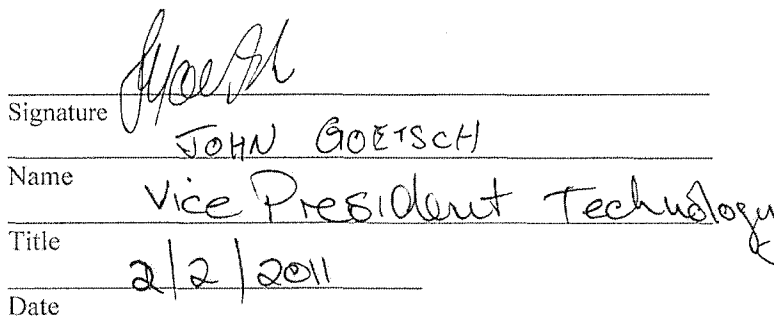 Signature
JOHN GOETSCH
Name
Vice President Technology
Title
2/2/2011
Date